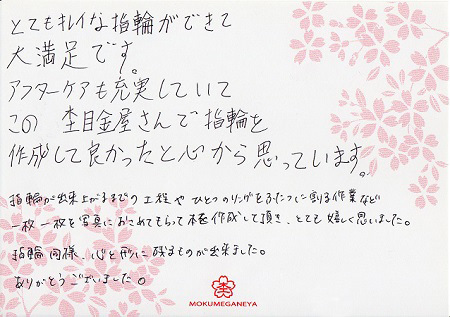 とてもキレイな指輪ができて
大満足です。
アフターケアも充実していて
この 杢目金屋さんで指輪を
作成して良かったと心から思っています。
指輪が出来上がるまでの工程や ひとつのリングをふたつに割る作業など
一枚一枚を写真におさめてもらって 作成して頂き、とても嬉しく思いました。
指輪同様、心と形に残るものが出来ました。
ありがとうございました。
MOKUMEGANEYA